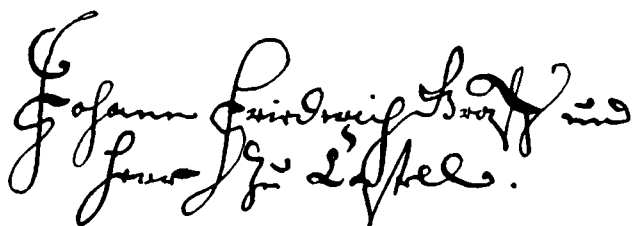 Johann Friederich Graff und
Herr zu Castel.